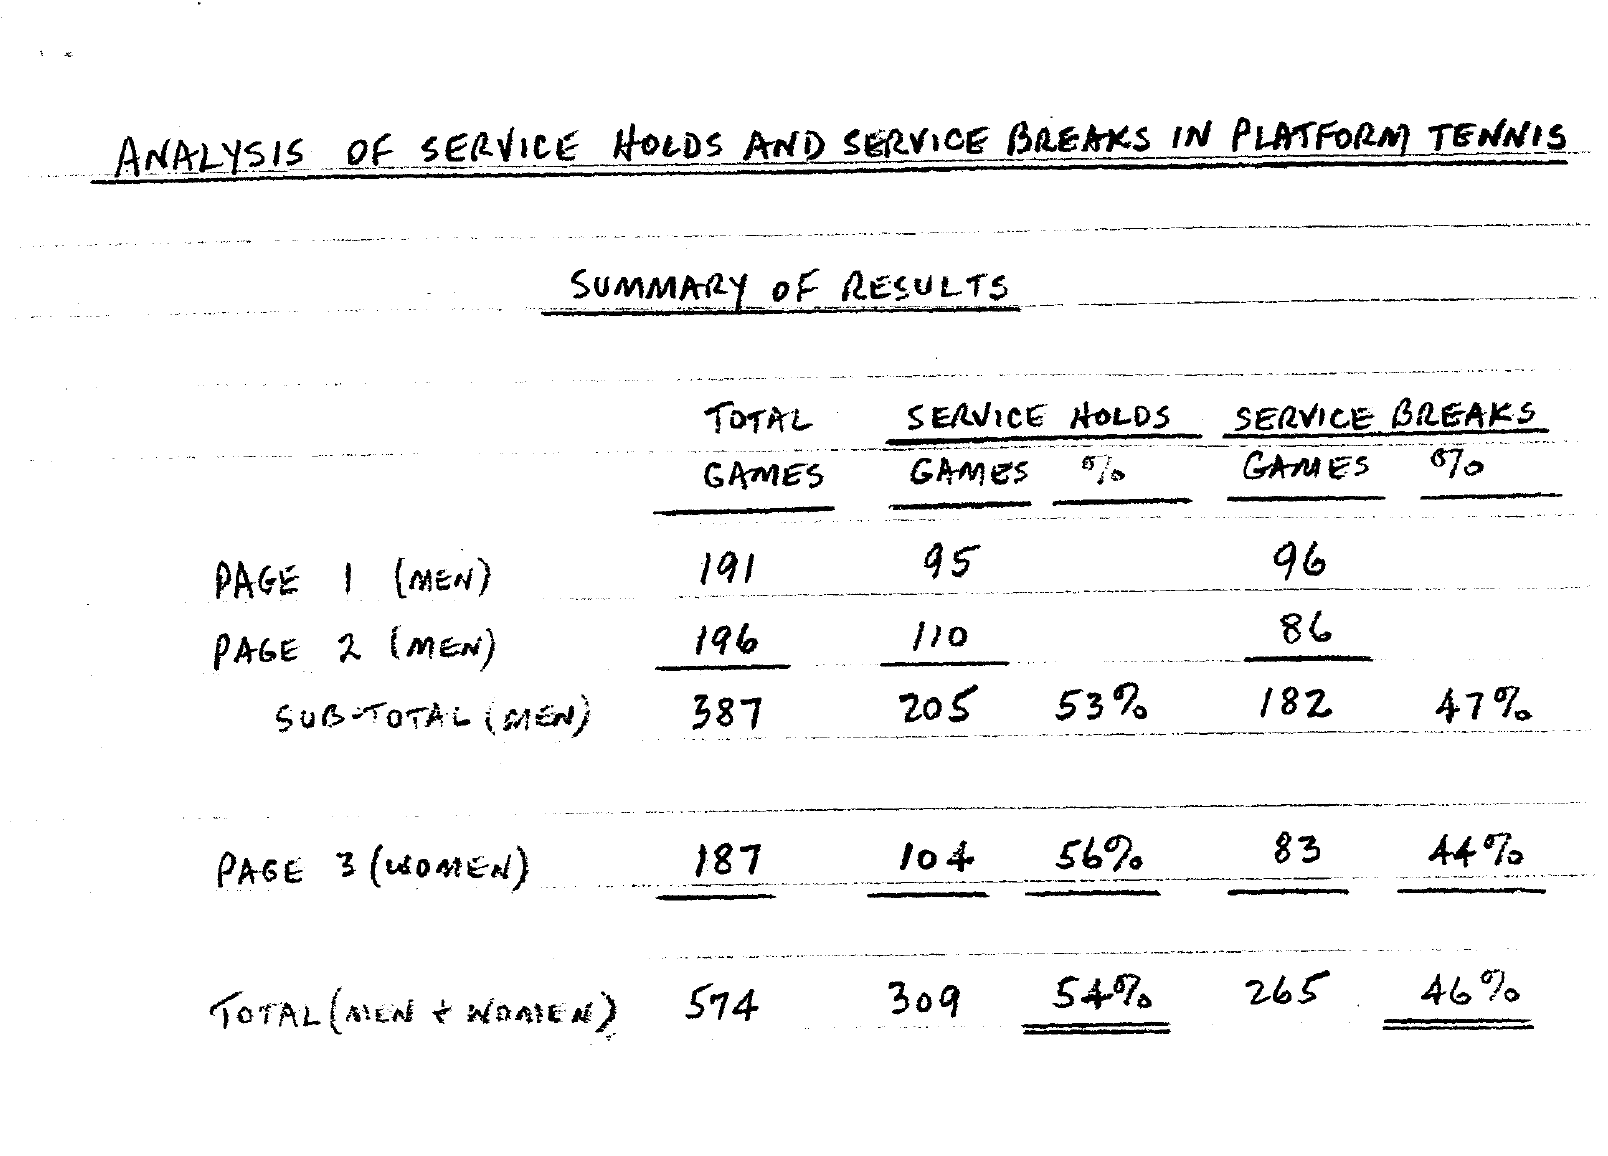 ANALYSIS OF SERVICE HOLDS AND SERVICE BREAKS IN PLATFORM TENNIS
SUMMARY OF RESULTS
TOTAL SERVICE HOLDS SERVICE BREAKS
GAMES GAMES % GAMES %
PAGE 1 (MEN) 191 95 96
PAGE 2 (MEN) 196 110 86
SUB-TOTAL (MEN) 387 205 53% 182 47%
PAGE 3 (WOMEN) 187 104 56% 83 44%
TOTAL (MEN + WOMEN) 574 309 54% 265 46%